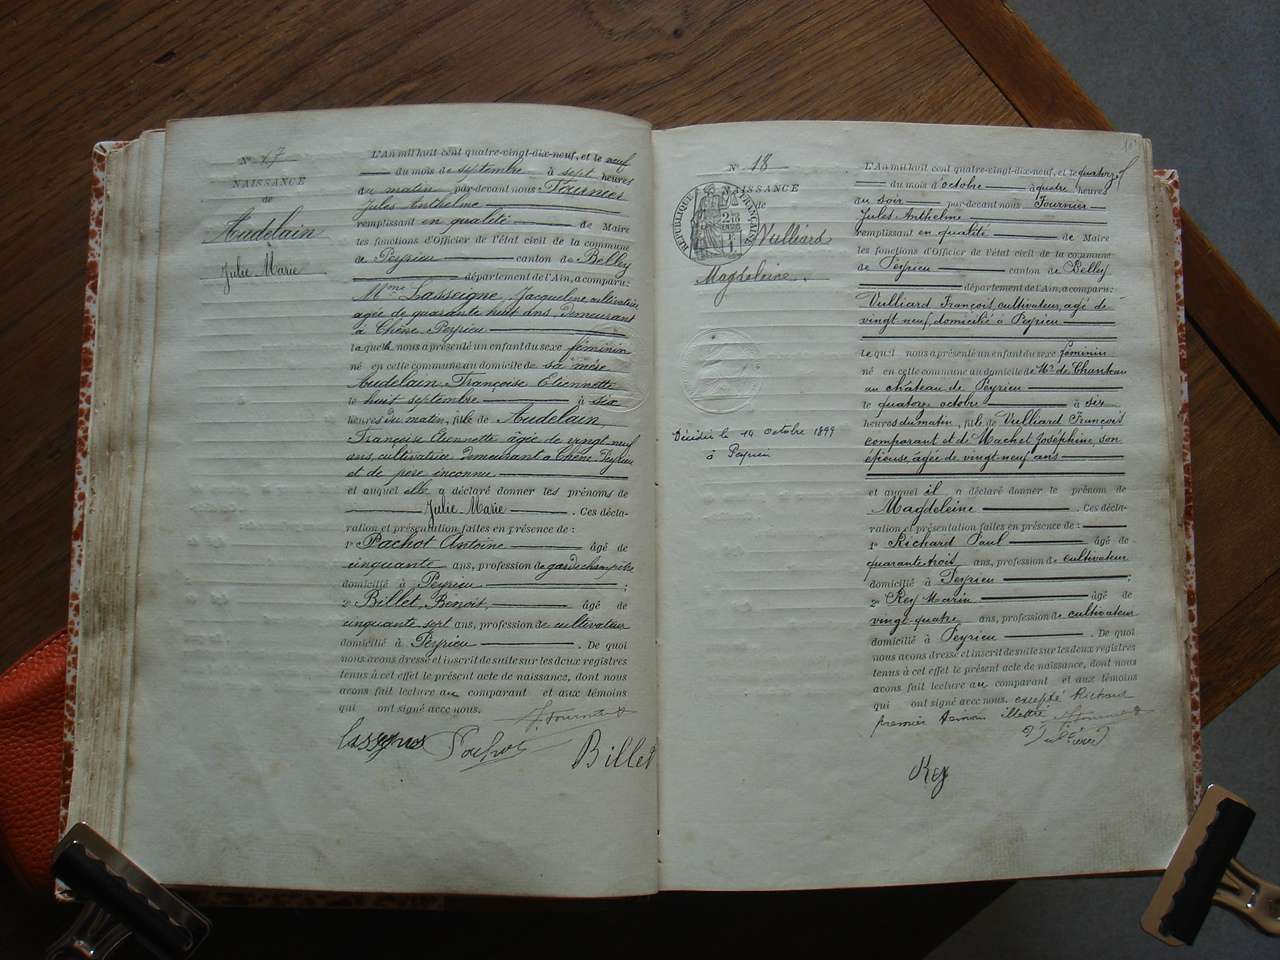 N° 17
NAISSANCE
de
Audelain
Julie Marie
L'An mil huit cent quatre-vingt-dix-neuf, et le neuf
du mois de septembre à sept heures
du matin par-devant nous Fournier
Jules Anthelme
remplissant en qualité de Maire
les fonctions d'Officier de l'état civil de la commune
de Peyrieu canton de Belley
département de l'Ain, a comparu:
Mme Lasseigne, Jacqueline cultivatrice
agée de quarante huit ans, demeurant
à Chêne, Peyrieu
laquelle nous a présenté un enfant du sexe féminin
né en cette commune au domicile de sa mère
Audelain Françoise Etiennette
le huit septembre à six
heures du matin, fille de Audelain,
Françoise Etiennette agée de vingt neuf
ans, cultivatrice demeurant à Chêne-Peyrieu
et de père inconnu
et auquel elle a déclaré donner les prénoms de
Julie Marie. Ces décla-
ration et présentation faites en présence de :
1° Pachot Antoine âgé de
cinquante ans, profession de garde champêtre
domicilié à Peyrieu ;
2° Billet, Benoit, âgé de
cinquante sept ans, profession de cultivateur
domicilié à Peyrieu. De quoi
nous avons dressé et inscrit de suite sur les deux registres
tenus à cet effet le présent acte de naissance, dont nous
avons fait lecture au comparant et aux témoins
qui ont signé avec nous.
J. Fournier
Billet
N° 18
NAISSANCE
de
RÉPUBLIQUE FRANÇAISE
Vulliard
Magdeleine.
Décédée le 14 octobre 1899
à Peyrieu
L'An mil huit cent quatre-vingt-dix-neuf, et le quatorze
du mois d'octobre à quatre heures
du soir par-devant nous Fournier
Jules Anthelme
remplissant en qualité de Maire
les fonctions d'Officier de l'état civil de la commune
de Peyrieu canton de Belley
département de l'Ain, a comparu:
Vulliard François, cultivateur, agé de
vingt-neuf, domicilié à Peyrieu
lequel nous a présenté un enfant du sexe féminin
né en cette commune au domicile de Mr de
au château de Peyrieu
le quatorze octobre à six
heures du matin, fille de Vulliard François
comparant et de Machet Joséphine, son
épouse, âgée de vingt-neuf ans
et auquel il a déclaré donner le prénom de
Magdeleine. Ces décla-
ration et présentation faites en présence de :
1° Richard Paul âgé de
quarante trois ans, profession de cultivateur
domicilié à Peyrieu ;
2° Rey Marin âgé de
vingt-quatre ans, profession de cultivateur
domicilié à Peyrieu. De quoi
nous avons dressé et inscrit de suite sur les deux registres
tenus à cet effet le présent acte de naissance, dont nous
avons fait lecture au comparant et aux témoins
qui ont signé avec nous. excepté Richard
premier témoin illettré J. Fournier
Rey